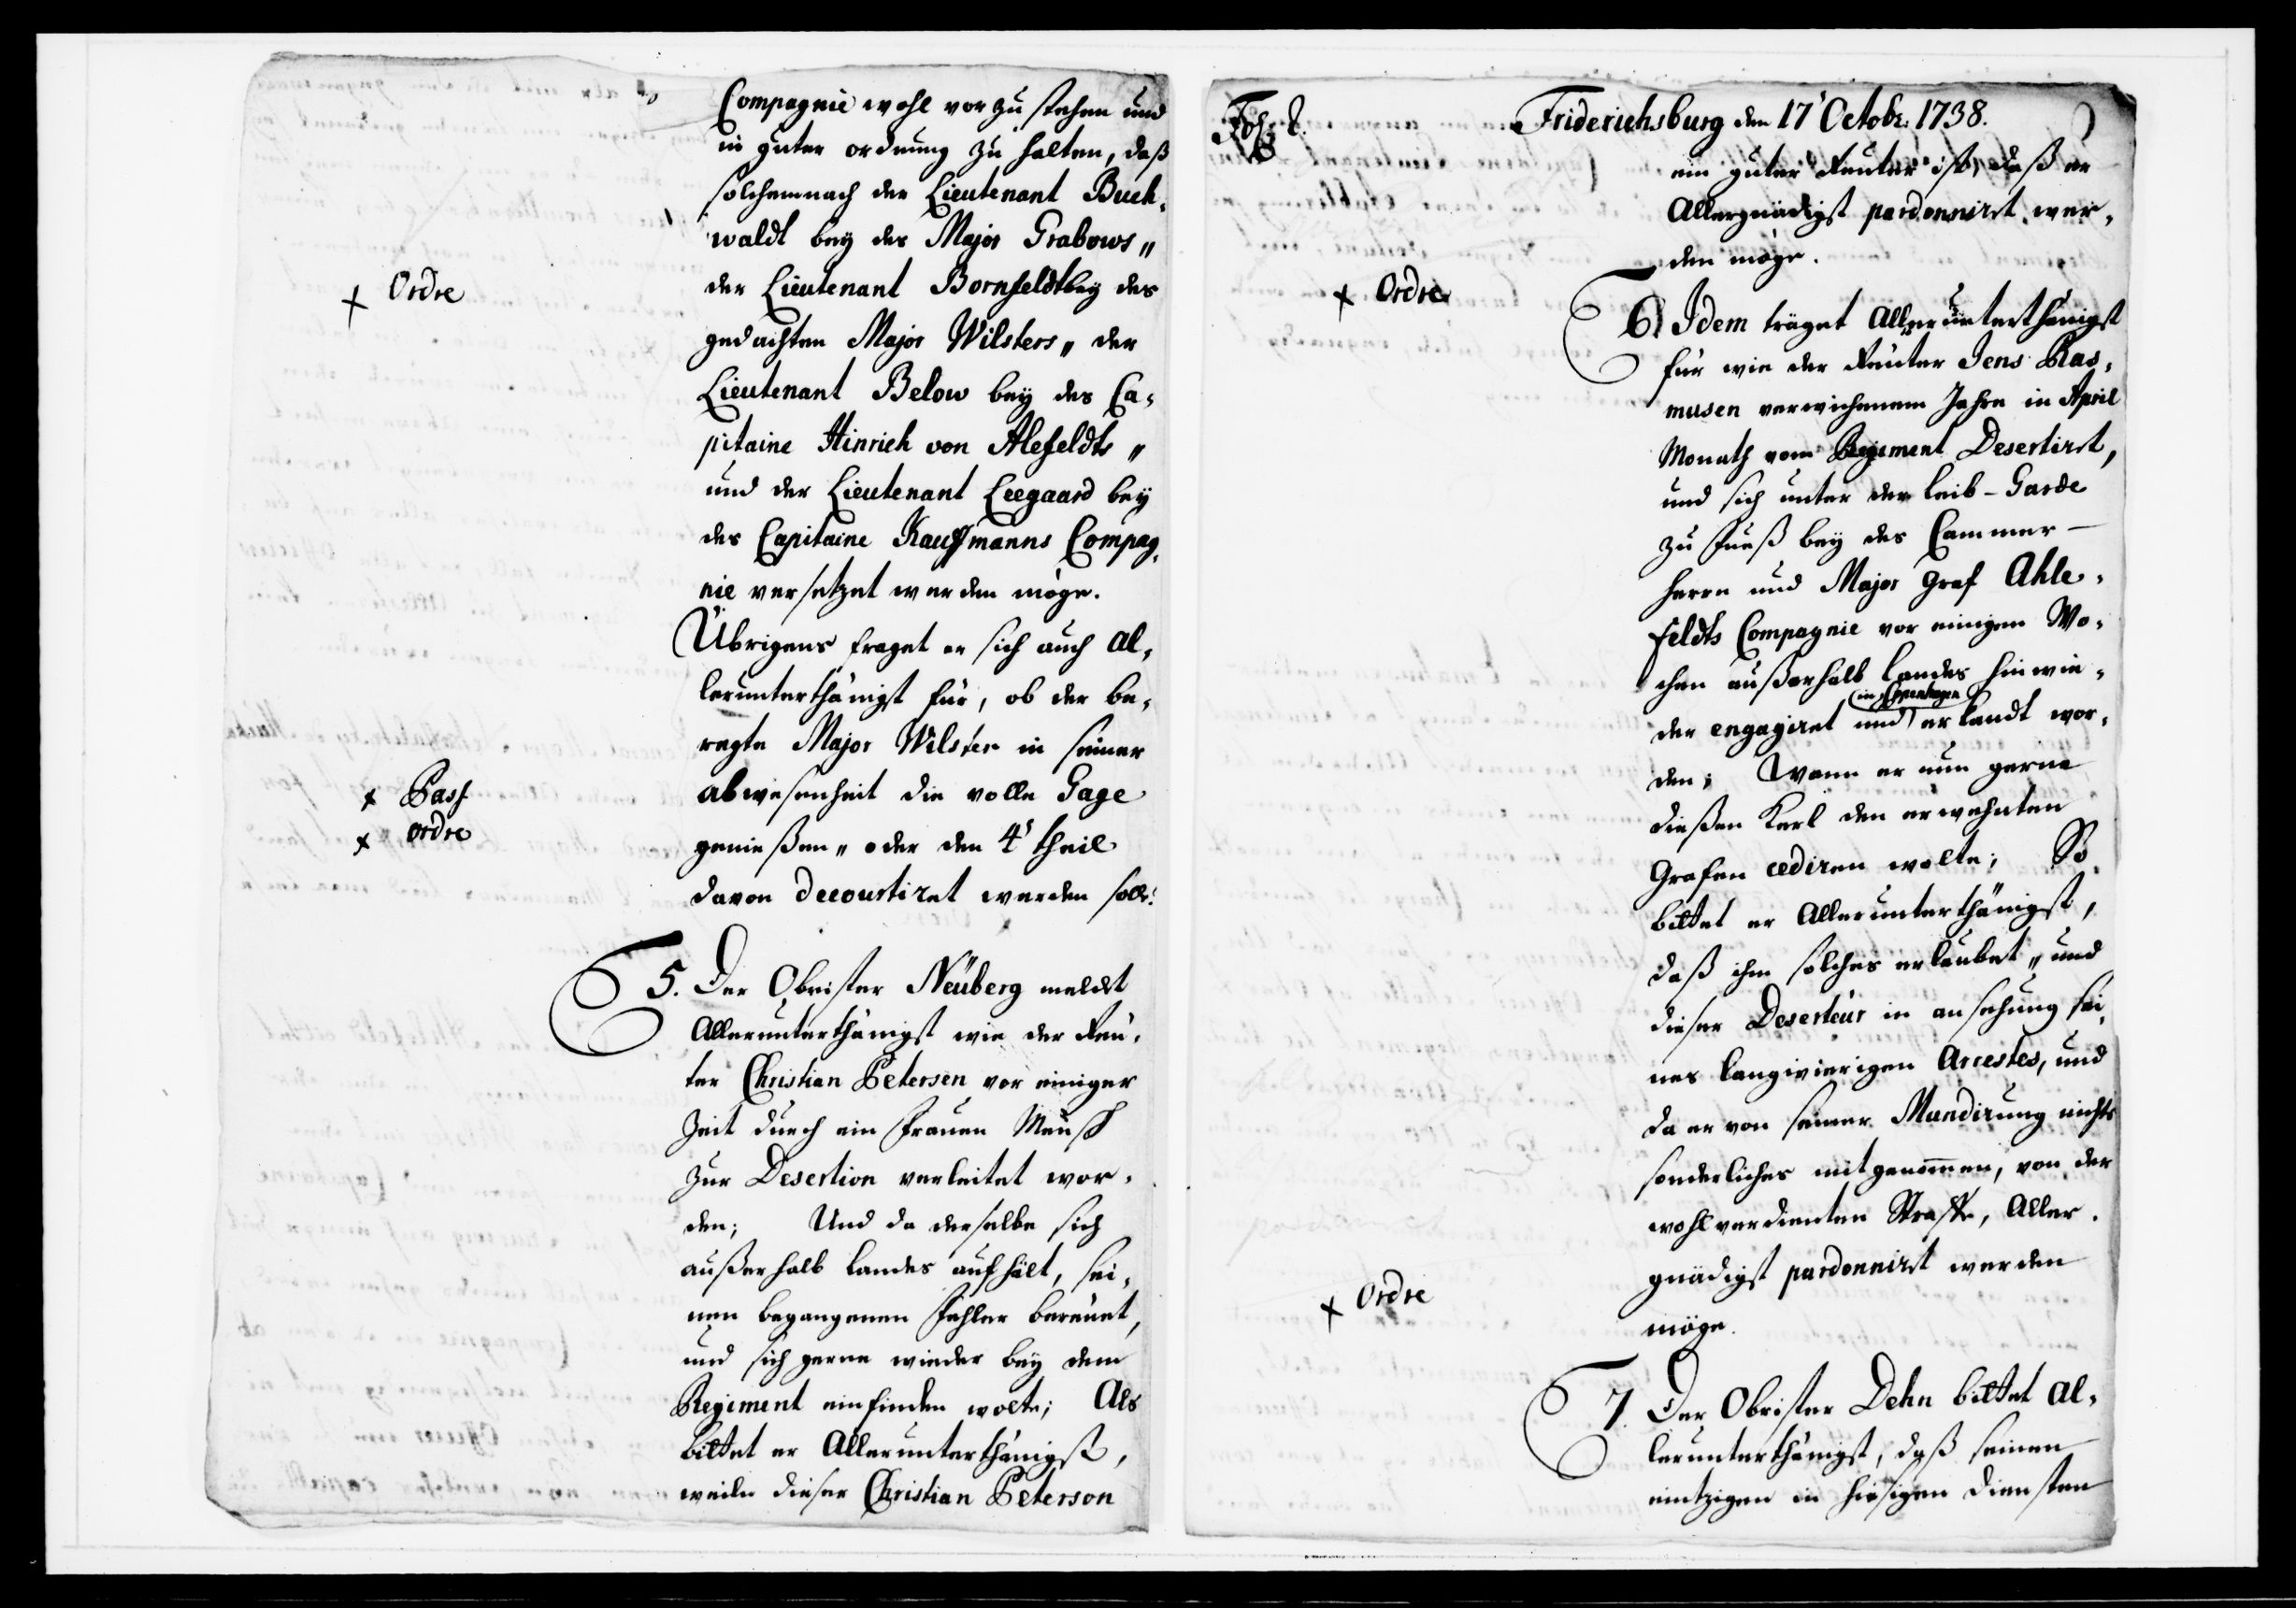 Compagnie wohl vorzustehen und
in guter ordnung zu halten, daß
solchemnach der Lieutenant Buch-
waldt bey des Major Grabows„
der Lieutenant Bornfeldt bey des
+ Ordre
gedachten Major Wilsters„ der
Lieutenant Below bey des Ca-
pitaine Hinrich von Alefeldts„
und der Lieutenant Leegaard bey
des Capitaine Kauffmanns Compag-
nie versetzet werden möge.
Übrigens fraget er sich auch al-
lerunterthänigst für, ob der be-
regte Major Wilster in seiner
+ Pass
abwesenheit die volle Gage
+ ordre
genießen„ oder den 4t theil
davon decourtiret werden soll?
5. Der Obrister Neüberg meldet
Allerunterthänigst wie der Reu-
ter Christian Petersen vor einiger
Zeit durch ein Frauen Mensch
zur Desertion verleitet wor-
den; Und da derselbe sich
außerhalb Landes aufhält, sei-
nen begangenen Fehler bereuet,
und sich gerne wieder bey dem
Regiment einfinden wolte; Als
bittet er Allerunterthänigst,
weiln dieser Christian Peterson
Fol: 8.
Friderichsburg den 17t Octobr. 1738.
ein guter Reuter ist, daß er
Allergnädigst pardonniret wer-
den möge.
+ Ordre
6. Idem träget Allerunterthänigst
für wie der Reuter Jens Ras-
musen verwichenem Jahre in April
Monath vom Regiment Desertiret,
und sich unter der Leib-Garde
zu Fueß bey des Cammer-
herrn und Major Graf Ahle-
feldts Compagnie vor einigen Wo-
chen außerhalb Landes hinwie-
der engagiret und in Copenhagen erkandt wor-
den; Wann er nun gerne
dießen Kerl den erwehnten
Grafen cediren wolte; So
bittet er Allerunterthänigst,
daß ihm solches erlaubet„ und
dieser Deserteur in ansehung sei-
nes langwierigen Arrestes, und
da er von seiner Mundirung nichts
sonderliches mitgenommen, von der
wohlverdienten Straffe, Aller-
gnädigst pardonniret werden
+ Ordre
möge.
7. Der Obrister Dehn bittet al-
lerunterthänigst, daß seinen
eintzigen in hiesigen Diensten